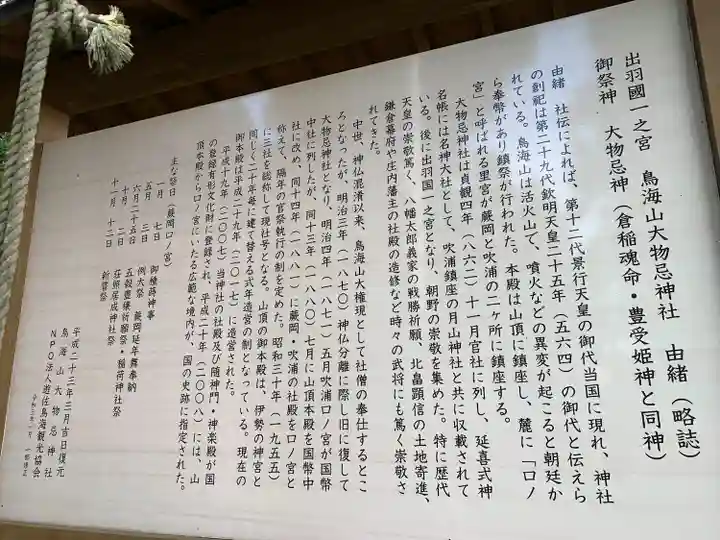 出羽國一之宮　鳥海山大物忌神社　由緒（略誌）
御祭神　大物忌神（倉稲魂命・豊受姫神と同神）
由緒　社伝によれば、第十二代景行天皇の御代当国に現れ、神社
の創祀は第二十九代欽明天皇二十五年（五六四）の御代と伝えら
れている。鳥海山は活火山で、噴火などの異変が起こると朝廷か
ら奉幣があり鎮祭が行われた。本殿は山頂に鎮座し、麓に「口ノ
宮」と呼ばれる里宮が蕨岡と吹浦の二ヶ所に鎮座する。
大物忌神社は貞観四年（八六二）十一月官社に列し、延喜式神
名帳には名神大社として、吹浦鎮座の月山神社と共に収載されて
いる。後に出羽国一之宮となり、朝野の崇敬を集めた。特に歴代
天皇の崇敬篤く、八幡太郎義家の戦勝祈願、北畠顕信の土地寄進、
鎌倉幕府や庄内藩主の社殿の造修など時々の武将にも篤く崇敬さ
れてきた。
中世、神仏混淆以来、鳥海山大権現として社僧の奉仕するとこ
ろとなったが、明治三年（一八七〇）神仏分離に際し旧に復して
大物忌神社となり、明治四年（一八七一）五月吹浦口ノ宮が国幣
中社に列したが、同十三年（一八八〇）七月に山頂本殿を国幣中
社に改め、同十四年（一八八一）に蕨岡・吹浦の社殿を口ノ宮と
称えて、隔年の官祭執行の制を定めた。昭和三十年（一九五五）
に三社を総称して現社号となる。山頂の御本殿は、伊勢の神宮と
同じく二十年毎に建て替える式年造営の制となっている。現在の
御本殿は平成二十九年（二〇一七）に造営された。
平成十九年（二〇〇七）当神社の社殿及び随神門・神楽殿が国
の登録有形文化財に登録され、平成二十年（二〇〇八）には、山
頂本殿から口ノ宮にいたる広範な境内が、国の史跡に指定された。
主な祭日（蕨岡口ノ宮）
一月　七日　御種蒔神事
五月　三日　例大祭・蕨岡延年舞奉納
六月二十五日　五穀豊穣祈願祭・稲荷神社祭
十月　二日　荘照居成神社祭
十一月　十二日　新嘗祭
平成二十三年三月吉日復元
鳥海山大物忌神社
ＮＰＯ法人遊佐鳥海観光協会